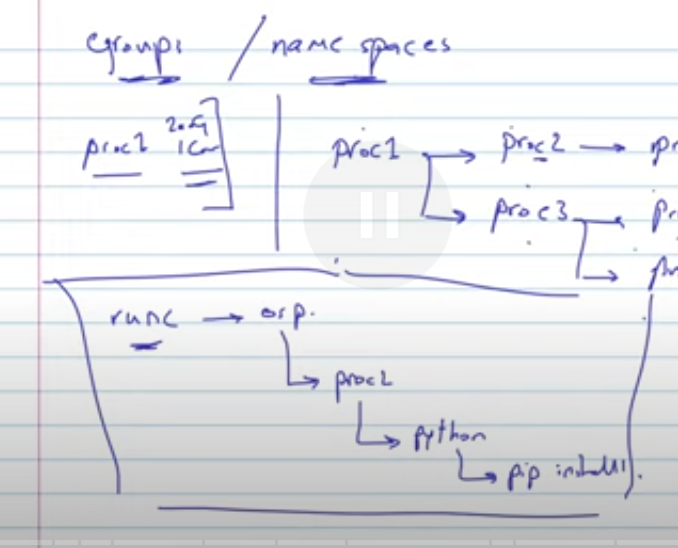 cgroups / name spaces
proc1
1 Core
proc1 → proc2 → pr
proc3 → pr
pr
runc →
proc1
python
pip install